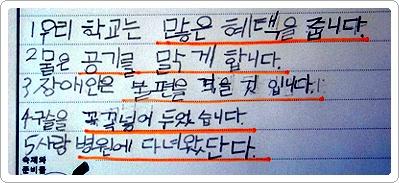 1 우리 학교는 많은 혜택을 줍니다.
2 물은 공기를 맑게 합니다.
3 장애인은 볼편을 겪을 것 입니다.
4 구슬을 꼭꼭넣어 두었습니다.
5 사랑 병원에 다녀왔단다.
숙제와
준비물